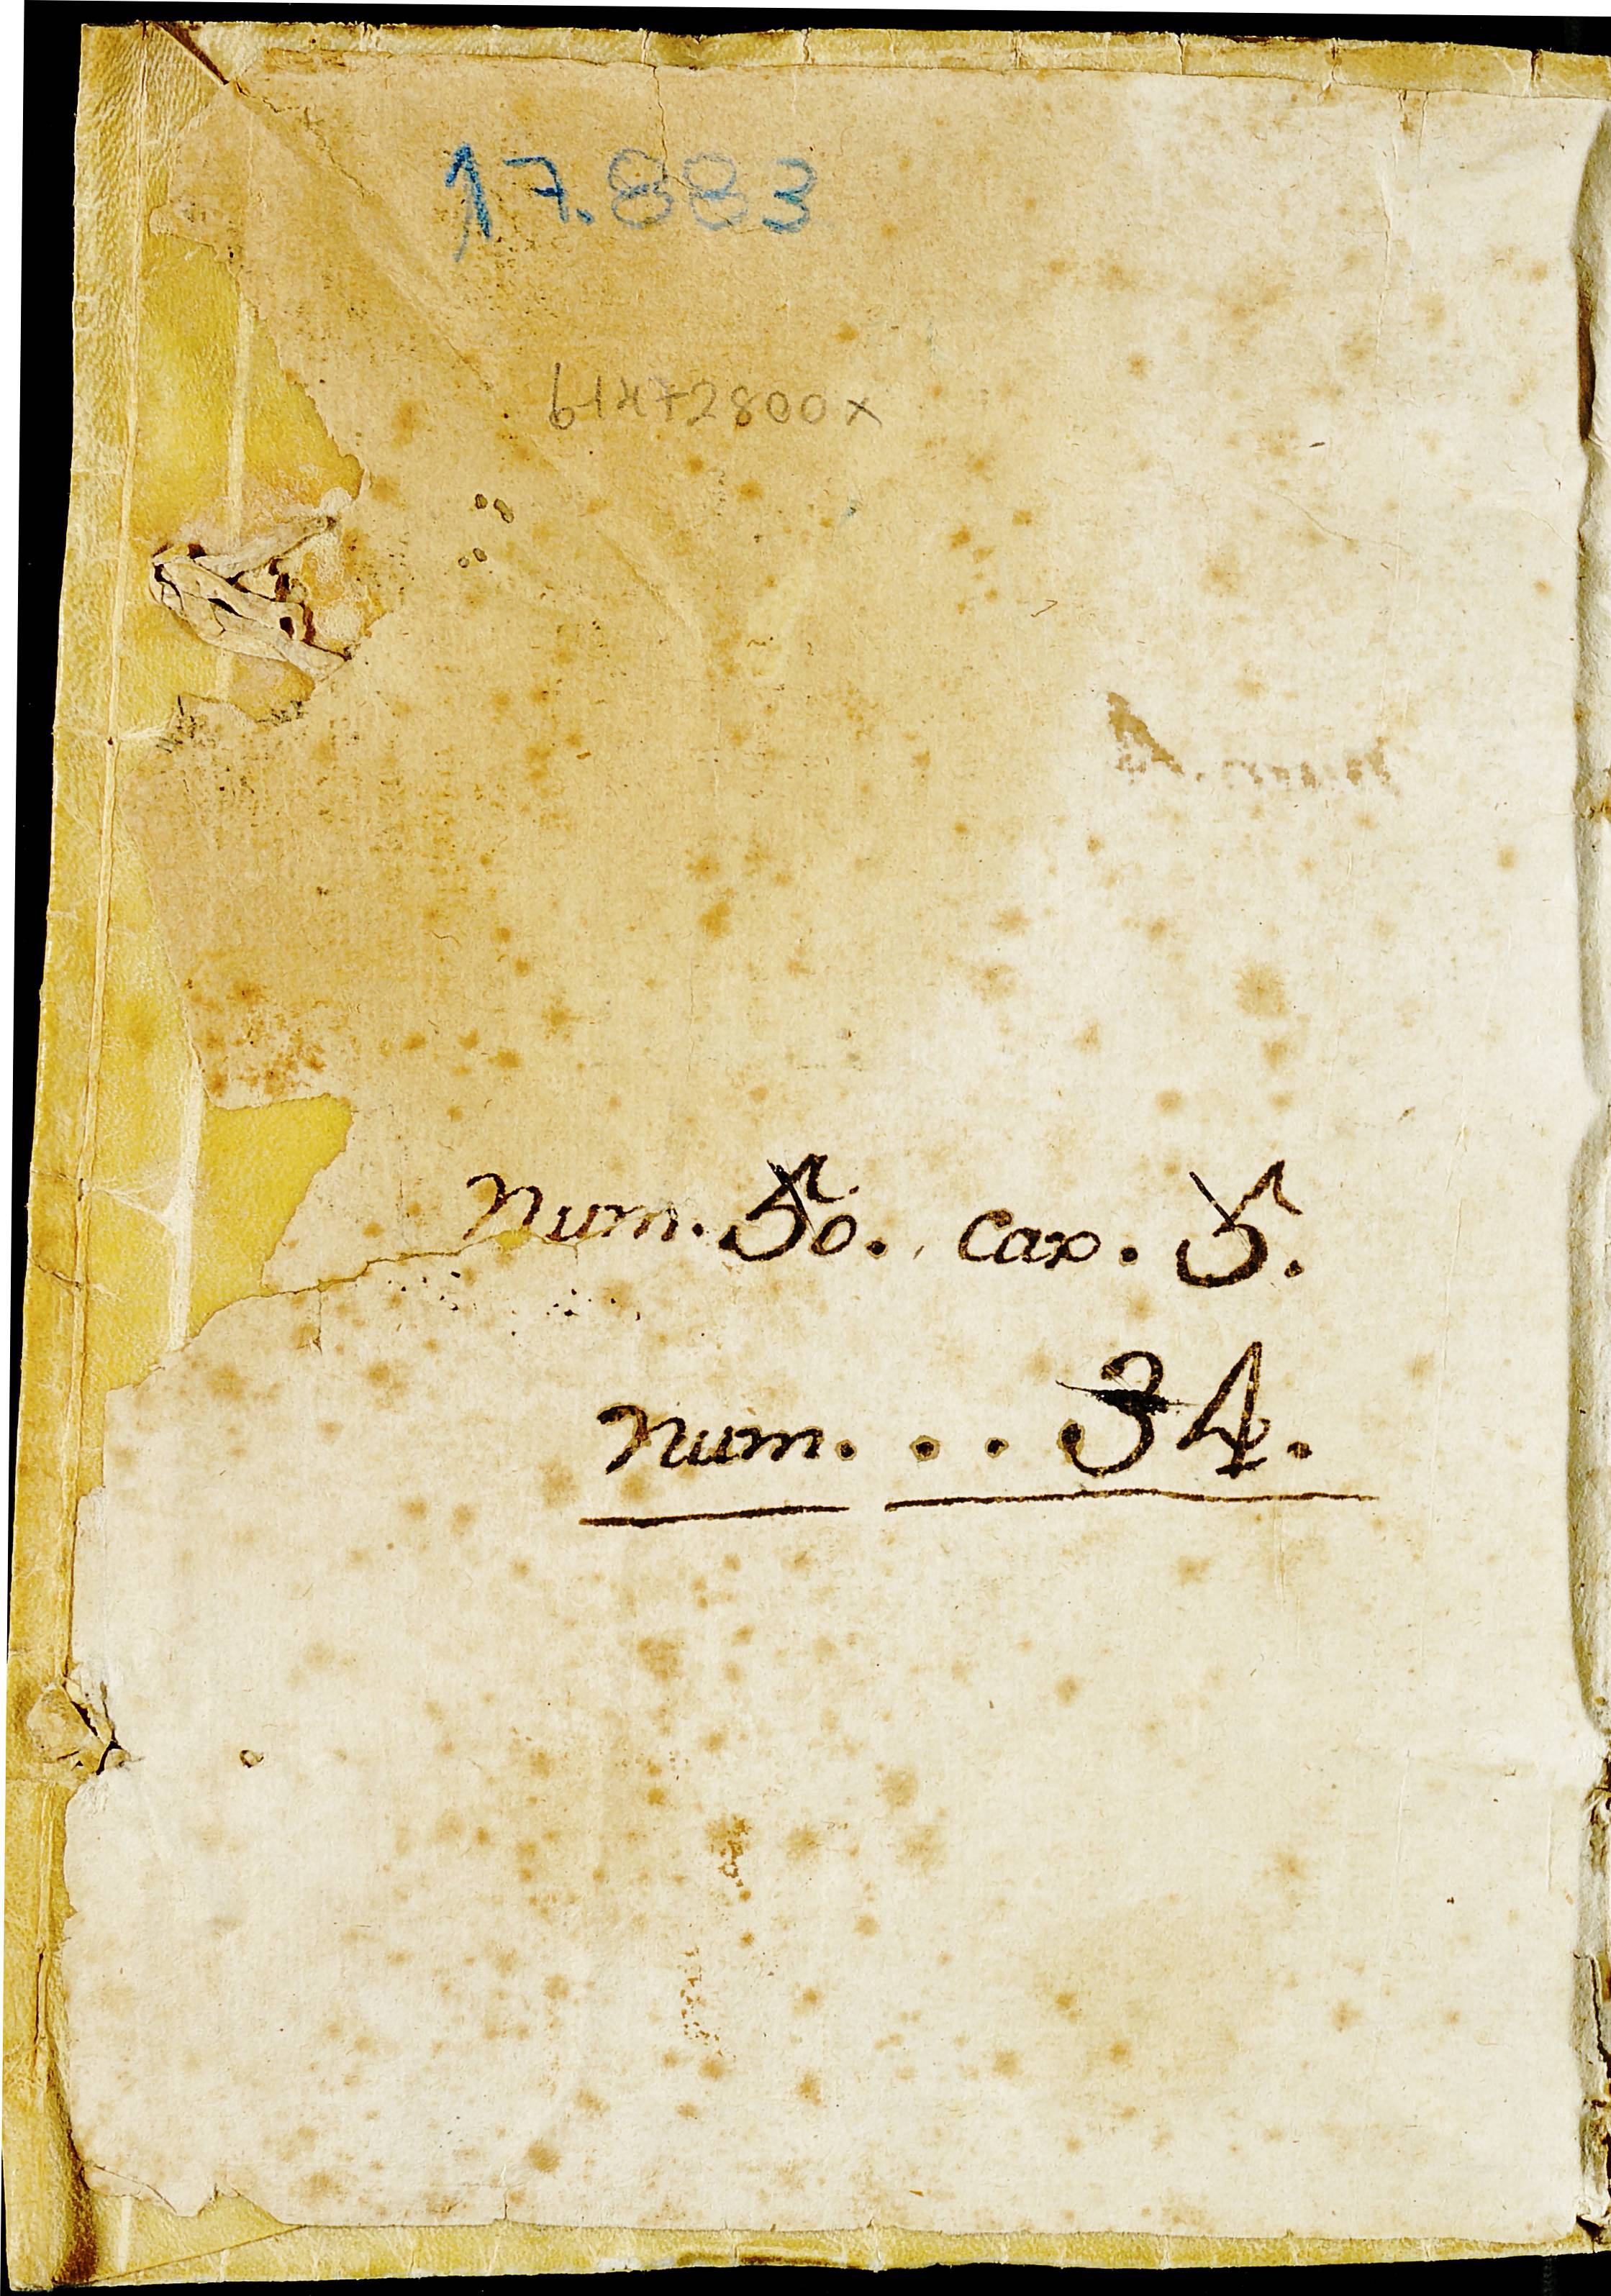 17.883
61472800x
Num. 50. cax. 5.
Num. . . . 34.